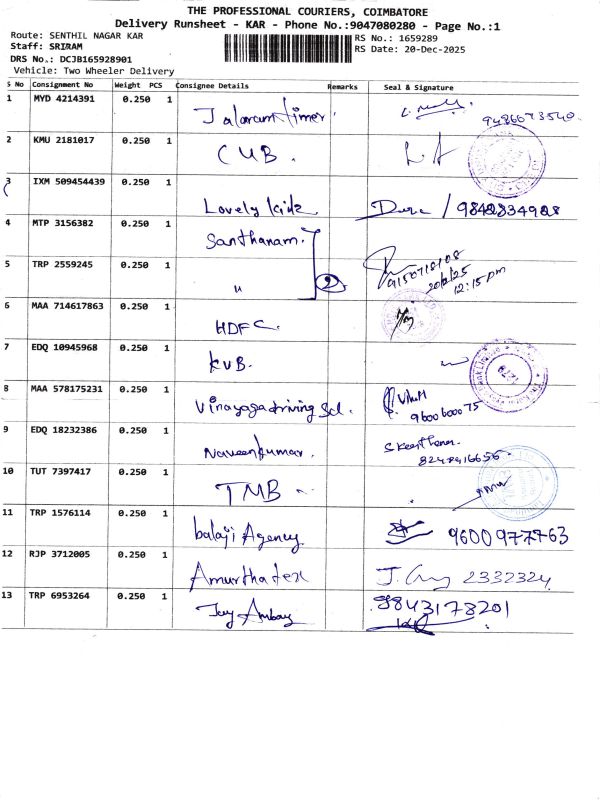 THE PROFESSIONAL COURIERS, COIMBATORE
Delivery Runsheet - KAR - Phone No.:9047080280 - Page No.:1
Route: SENTHIL NAGAR KAR
Staff: SRIRAM
DRS No.: DCJB165928901
Vehicle: Two Wheeler Delivery
RS No.: 1659289
RS Date: 20-Dec-2025
S No Consignment No Weight PCS Consignee Details Remarks Seal & Signature
1 MYD 4214391 0.250 1 Jalaram timer
2 KMU 2181017 0.250 1 CUB.
3 IXM 509454439 0.250 1 Lovely kidz
4 MTP 3156382 0.250 1 Santhanam.
5 TRP 2559245 0.250 1 " 2 9150718108
20/12/25
12:15 pm
6 MAA 714617863 0.250 1 HDFC.
7 EDQ 10945968 0.250 1 KVB.
8 MAA 578175231 0.250 1 Vinayaga driving Scl. 9600600075
9 EDQ 18232386 0.250 1 Naveenkumar.
10 TUT 7397417 0.250 1 TMB
11 TRP 1576114 0.250 1 balaji Agency 9600977763
12 RJP 3712005 0.250 1 Amurtha tex 2332324
13 TRP 6953264 0.250 1 Jay Ambay 9843178201